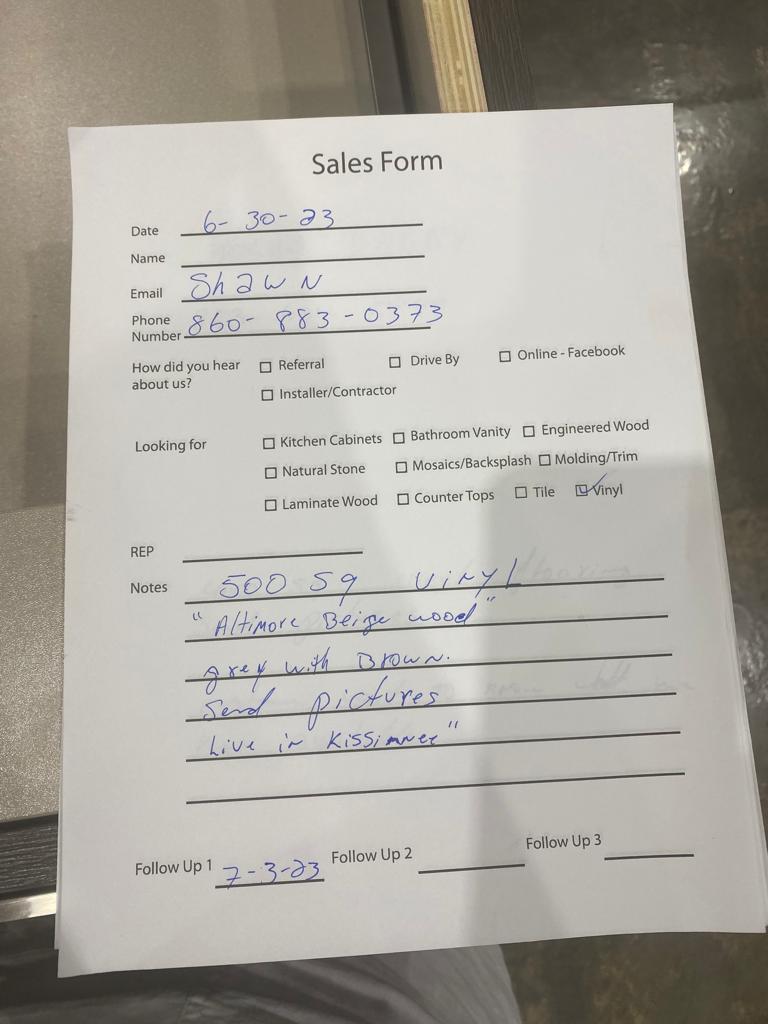 Sales Form
Date 6-30-23
Name
Email Shawn
Phone Number 860-883-0373
How did you hear about us? ☐ Referral ☐ Drive By ☐ Online - Facebook
☐ Installer/Contractor
Looking for ☐ Kitchen Cabinets ☐ Bathroom Vanity ☐ Engineered Wood
☐ Natural Stone ☐ Mosaics/Backsplash ☐ Molding/Trim
☐ Laminate Wood ☐ Counter Tops ☐ Tile ☑ Vinyl
REP
Notes 500 Sq Vinyl
"Altimore Beige wood"
grey with Brown.
Send pictures
Live in Kissimnee"
Follow Up 1 7-3-23 Follow Up 2 Follow Up 3